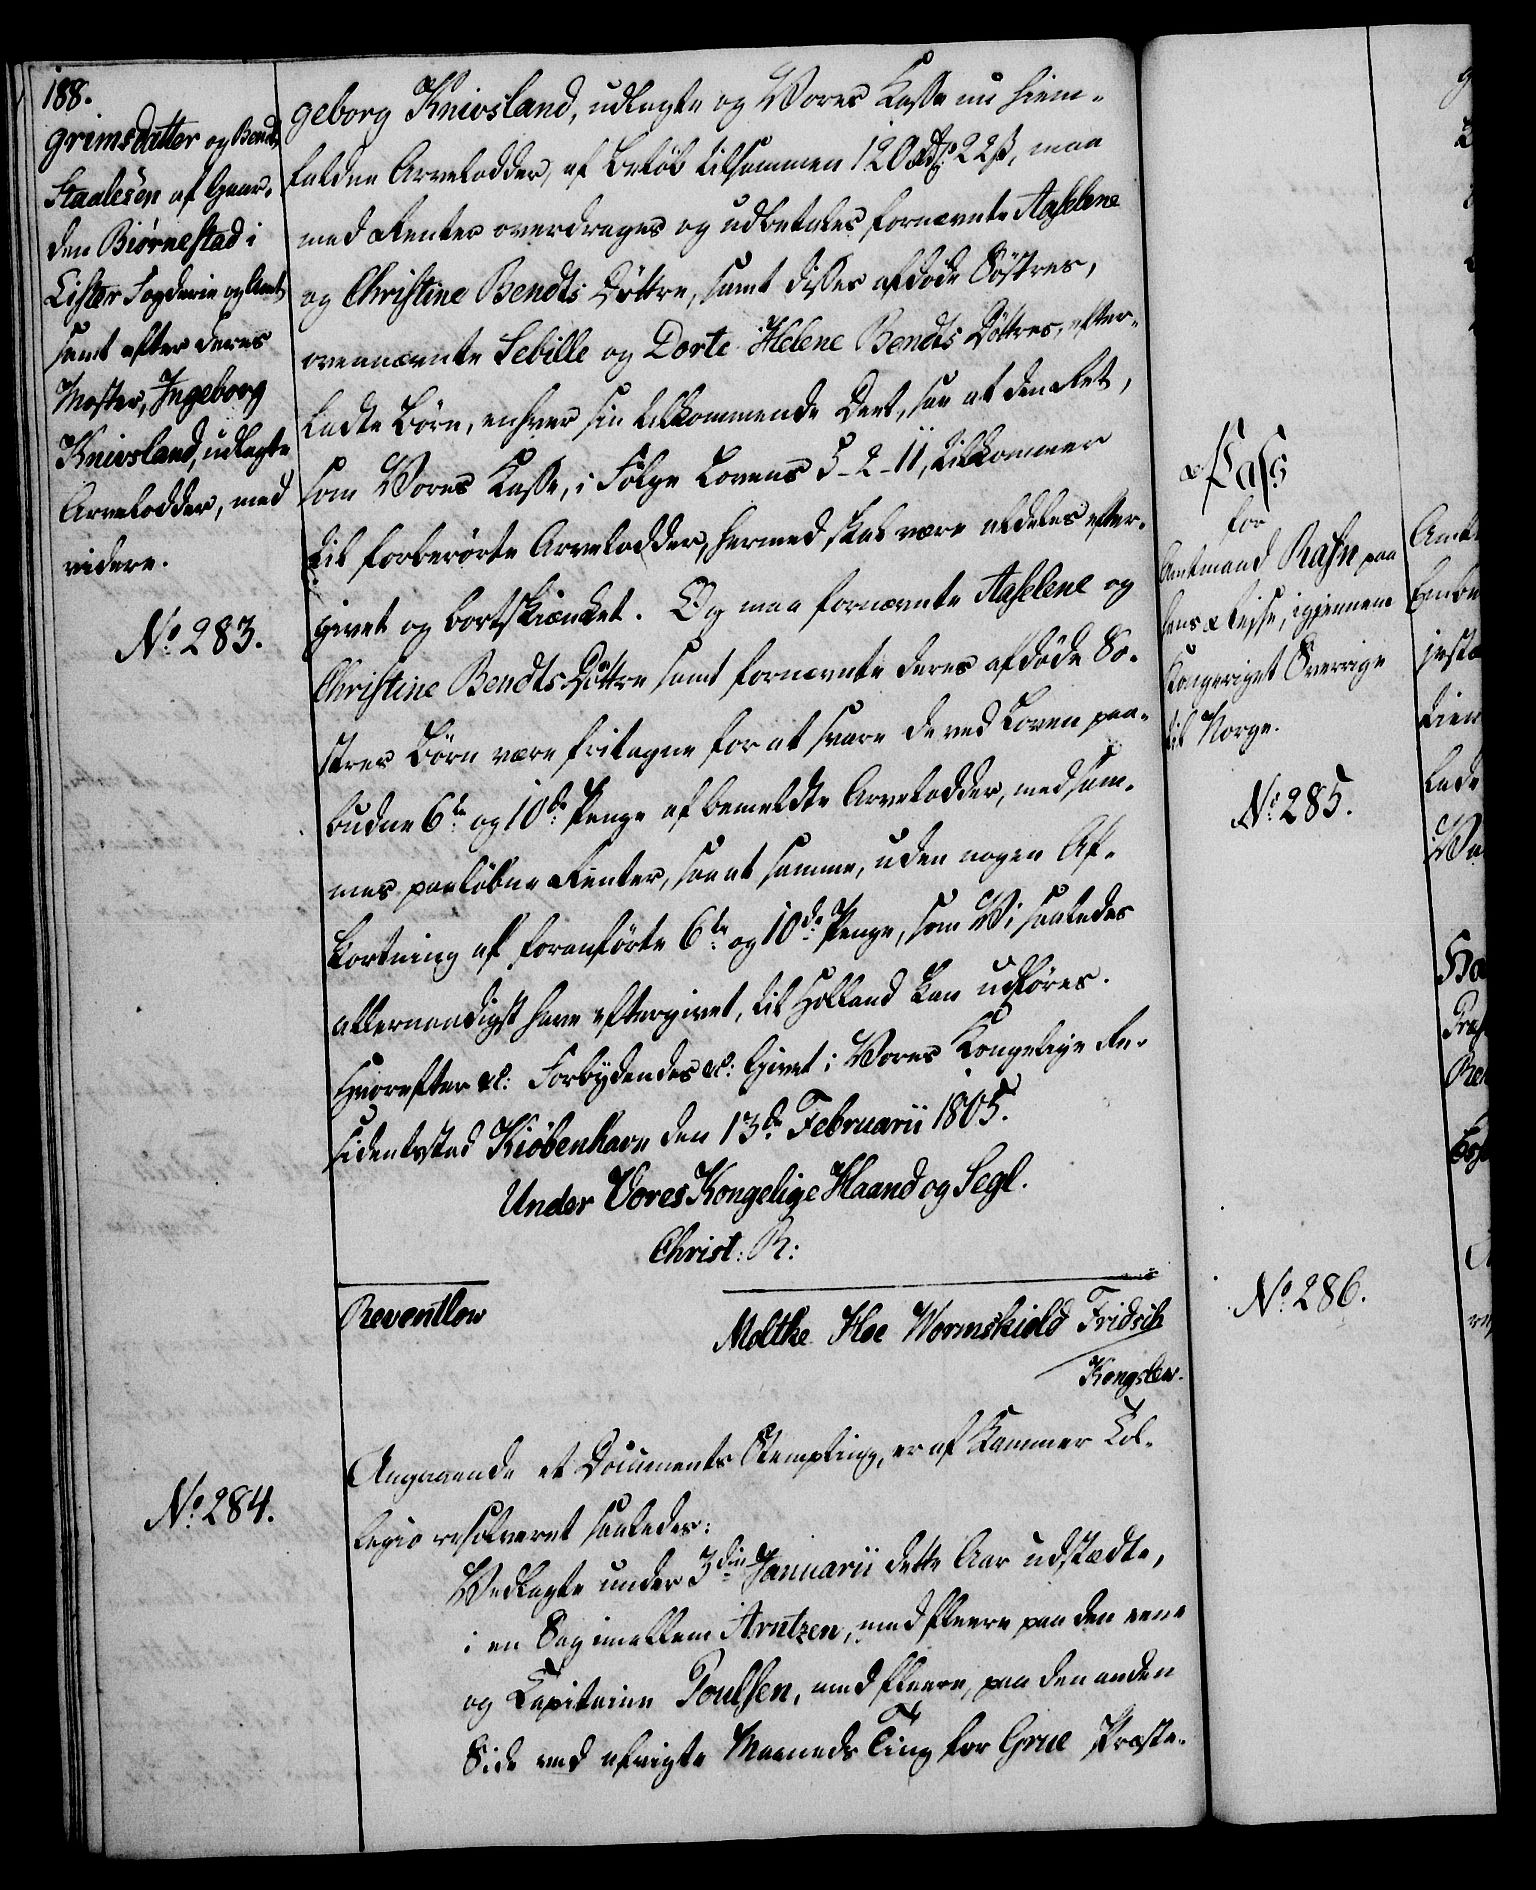 188.
grimsdatter og Bendt
Staalesen af Gaar-
den Biørnestad i
Lister Fogderie og Amt
samt efter deres
Moster, Ingeborg
Knivsland, udlagte
Arvelodder, med
videre.
No 283.
geborg Knivsland, udlagte og Vores Kasse nu hiem-
faldne Arvelodder, af Beløb tilsammen 120 Rdr 22 ß, maa
med Renter overdrages og udbetales fornævnte Aaselene
og Christine Bendts Døttre, samt disses afdøde Søstres,
ovennævnte Sebille og Dorte Helene Bendts Døttres, efter-
ladte Børn, enhver sin tilkommende Deel, saa at den Ret,
som Vores Kasse, i Følge Lovens 5-2-11, tilkommer
til forberørte Arvelodder, hermed skal være aldeles efter-
givet og bortskiænket. Og maa fornævnte Aaselene og
Christine Bendts Døttre samt fornævnte deres afdøde Sø-
stres Børn være fritagne for at svare de ved Loven paa-
budne 6te og 10de Penge af bemeldte Arvelodder, med sam-
mes paaløbne Renter, saa at samme, uden nogen Af-
kortning af foranførte 6te og 10de Penge, som Vi saaledes
allernaadigst have eftergivet, til Holland kan udføres.
Hvorefter &c: Forbydendes &c: Givet i Vores Kongelige Re-
sidentzstad Kiøbenhavn den 13de Februarii 1805.
Under Vores Kongelige Haand og Segl.
Christ: R:
Reventlow
Moltke Hoe Wormskiold Fridrich
Kongslew.
No 284.
Angaaende et Documents Stempling, er af Kammer Col-
legio resolveret saaledes:
Vedlagte under 3die Januarii dette Aar udstædte,
i en Sag imellem Arntzen, med fleere paa den eene
og Capitaine Poulsen, med fleere, paa den anden
Side ved afvigte Maaneds Ting for Grue Præste-
Pass
for
Amtmand Rafn paa
hans Reise, igjennem
Kongeriget Sverrige
til Norge.
No 285.
No 286.